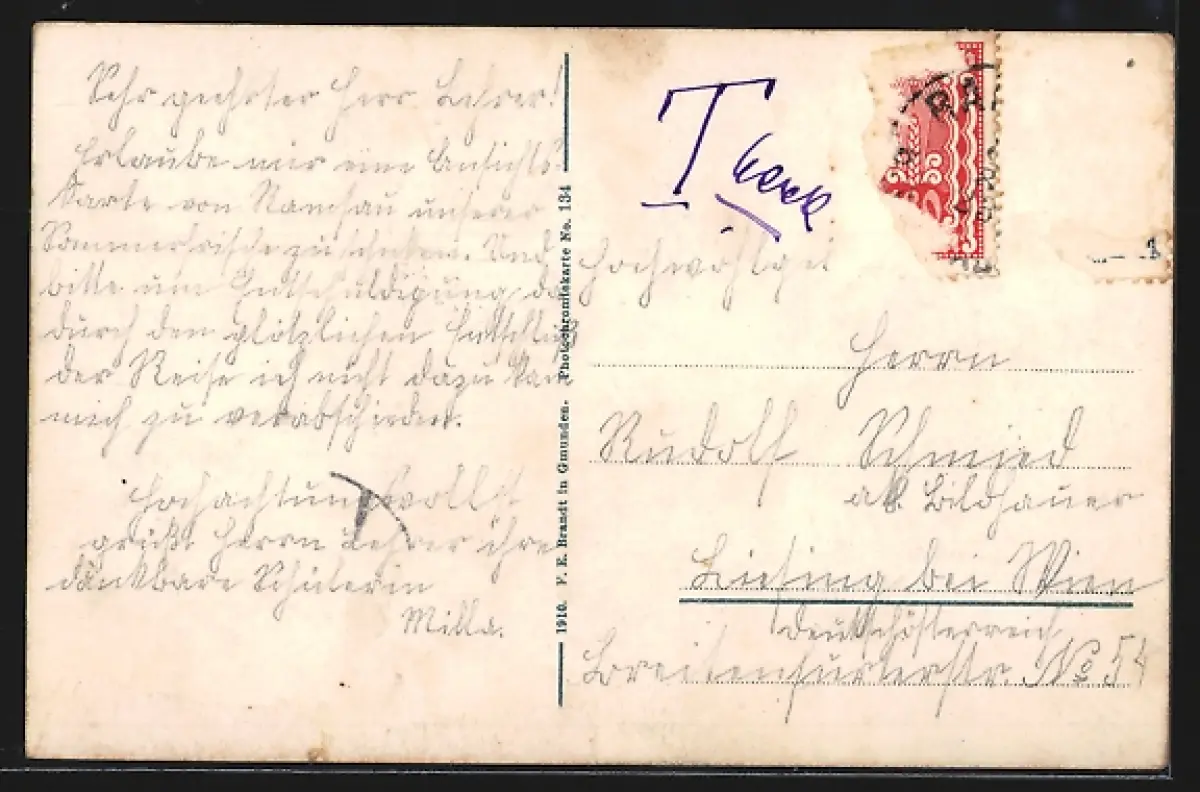 Sehr geehrter Herr Lehrer!
Erlaube mir eine Ansichts-
karte von Ramsau unserer
Sommerfrische zu schicken. Und
bitte um Entschuldigung, da
durch den plötzlichen Entschluß
der Reise ich nicht dazu kam
mich zu verabschieden.
Hochachtungsvollst
grüßt Herrn Lehrer ihre
dankbare Schülerin
Milla.
1910. F. E. Brandt in Gmunden. Photochromiekarte No. 134
T
Hochwohlgeb
Herrn
Rudolf Schmied
ak. Bildhauer
Liesing bei Wien
Deutschösterreich
Breitenfurterstr. No 54